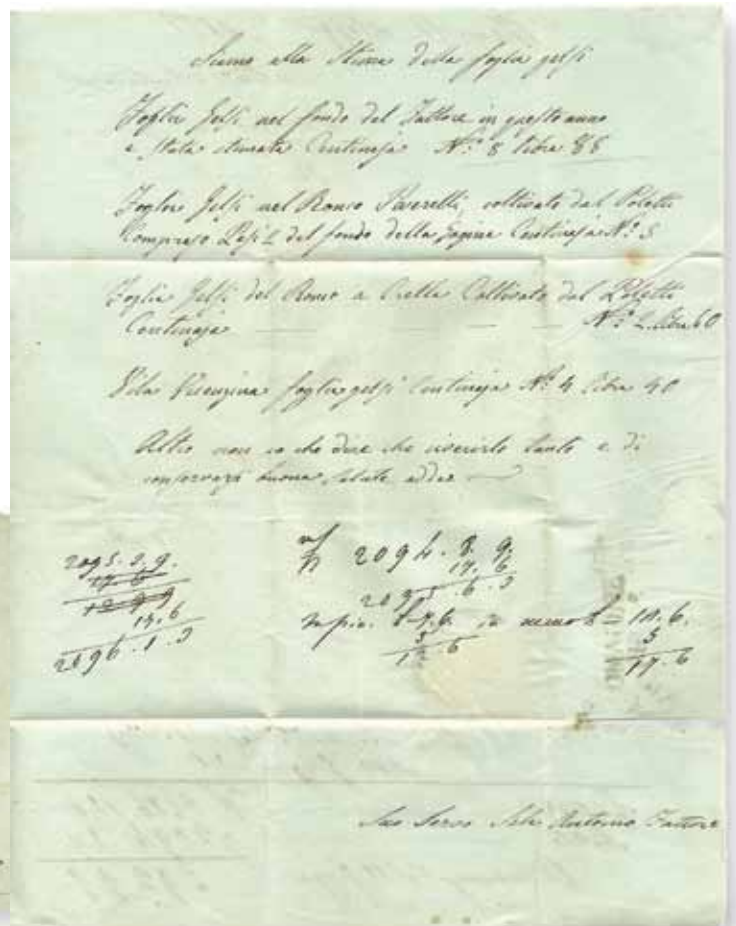 Siamo alla Stima della foglia gelsi
Foglia Gelsi nel fondo del Fattore in questo anno
è stata stimata Centinaja N.° 8 libre 88
Foglia Gelsi nel Ronco coltivato dal Poletti
Compreso Pesi 2 del fondo della Centinaja N.° 5
Foglia Gelsi del Ronco a Crella Coltivato dal Poletti
Centinaja — — — N.° 2. libre 60
Vila Visenzina foglia gelsi Centinaja N.° 4 libre 40
Altro non so che dire che riverirlo tanto e di
conservarsi buona salute addio
2095. 2. 9.
17 6
17. 6
2096. 1. 3
2094. 8. 9.
17. 6
2095. 6. 3
in meno 14. 6.
3
17. 6
Suo Servo Antonio Fattore